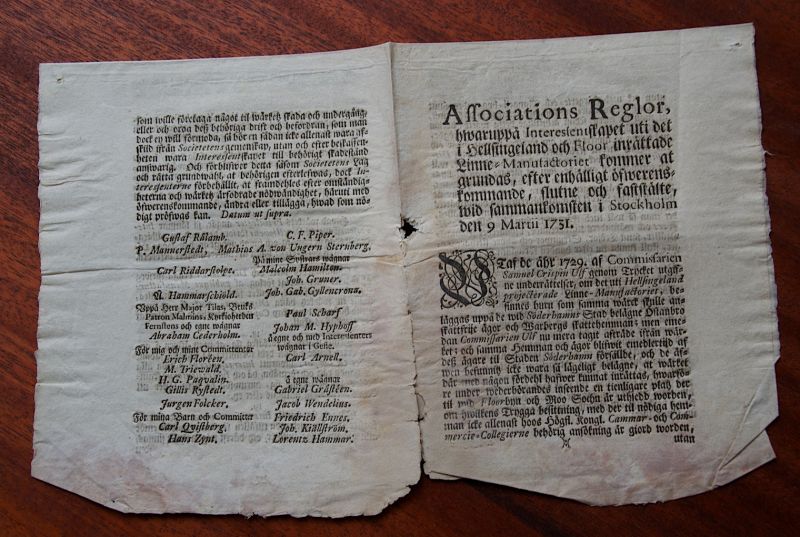 som wille företaga något til wärketz skada och undergång,
eller och oroa deß behöriga drift och befordran, som man
dock ey will förmoda, så bör en sådan icke allenast wara af-
skild ifrån Societetens gemenskap, utan och efter beskaffen-
heten wara Interessentskapet til behörigt skadestånd
answarig. Och förblifwer detta såsom Societetens Lag
och rätta grundwahl, at behörigen efterlefwas, dock In-
teressenterne förbehållit, at framdehles efter omständig-
heterna och wärketz ärfodrade nödwändighet, häruti med
öfwerenskommande, ändra eller tillägga, hwad som nö-
digt pröfwas kan. Datum ut supra.
Gustaf Rålamb. C. F. Piper.
P. Mannerstedt, Mathias A. von Ungern Sternberg.
På mine Systrars wägnar
Carl Riddarstolpe. Malcolm Hamilton.
Joh. Gruner.
A. Hammarschiold. Joh. Gab. Gyllencrona.
Uppå Herr Major Tilas, Bruks
Patron Malmins, Kyrkioherden
Fernstens och egne wägnar
Abraham Cederholm.
Paul Scharf
Johan M. Hyphoff
å egne och med Interessenters
wägnar i Gefle.
För mig och mint Committenter
Erich Floréen. Carl Arnell.
M. Triewald.
H. G. Pagvalin. å egne wägnar
Gillis Rystedt. Gabriel Gråstéen.
Jurgen Folcker. Jacob Wendelius.
För mina Barn och Committenter Friedrich Ennes.
Carl Qvistberg. Joh. Kiällström.
Hans Zynt. Lorentz Hammar.
Associations Reglor,
hwaruppå Interessentskapet uti det
i Hellsingeland och Floor inrättade
Linne-Manufactoriet kommer at
grundas, efter enhälligt öfwerens-
kommande, slutne och faststälte,
wid sammankomsten i Stockholm
den 9 Martii 1731.
UTaf de åhr 1729. af Commissarien
Samuel Crispin Ulf genom Trycket utgif-
ne underrättelser, om det uti Hellsingeland
projecterade Linne-Manufactoriet, be-
finnes huru som samma wärck skulle an-
läggas uppå de wid Söderhamns Stad belägne Östanbro
skattefrije ägor och Warbergs skattehemman; men eme-
dan Commissarien Ulf nu mera tagit afträde ifrån wär-
ket; och samma Hemman och ägor blifwit emedlertijd af
deß ägare til Staden Söderhamn försålde, och de äf-
wen befunnitz icke wara så lägeligt belägne, at wärket
där med någon fördehl hafwer kunnat inrättas, hwarföre
är under wederbörandes inseende en tienligare platz der
til wid Floorbyn och Moo Sochn är utsedd worden,
om hwilkens Trygga besittning, med der til nödige hem-
man icke allenast hoos Högst. Kongl. Cammar- och Com-
mercie-Collegierne behörig ansökning är giord worden,
utan